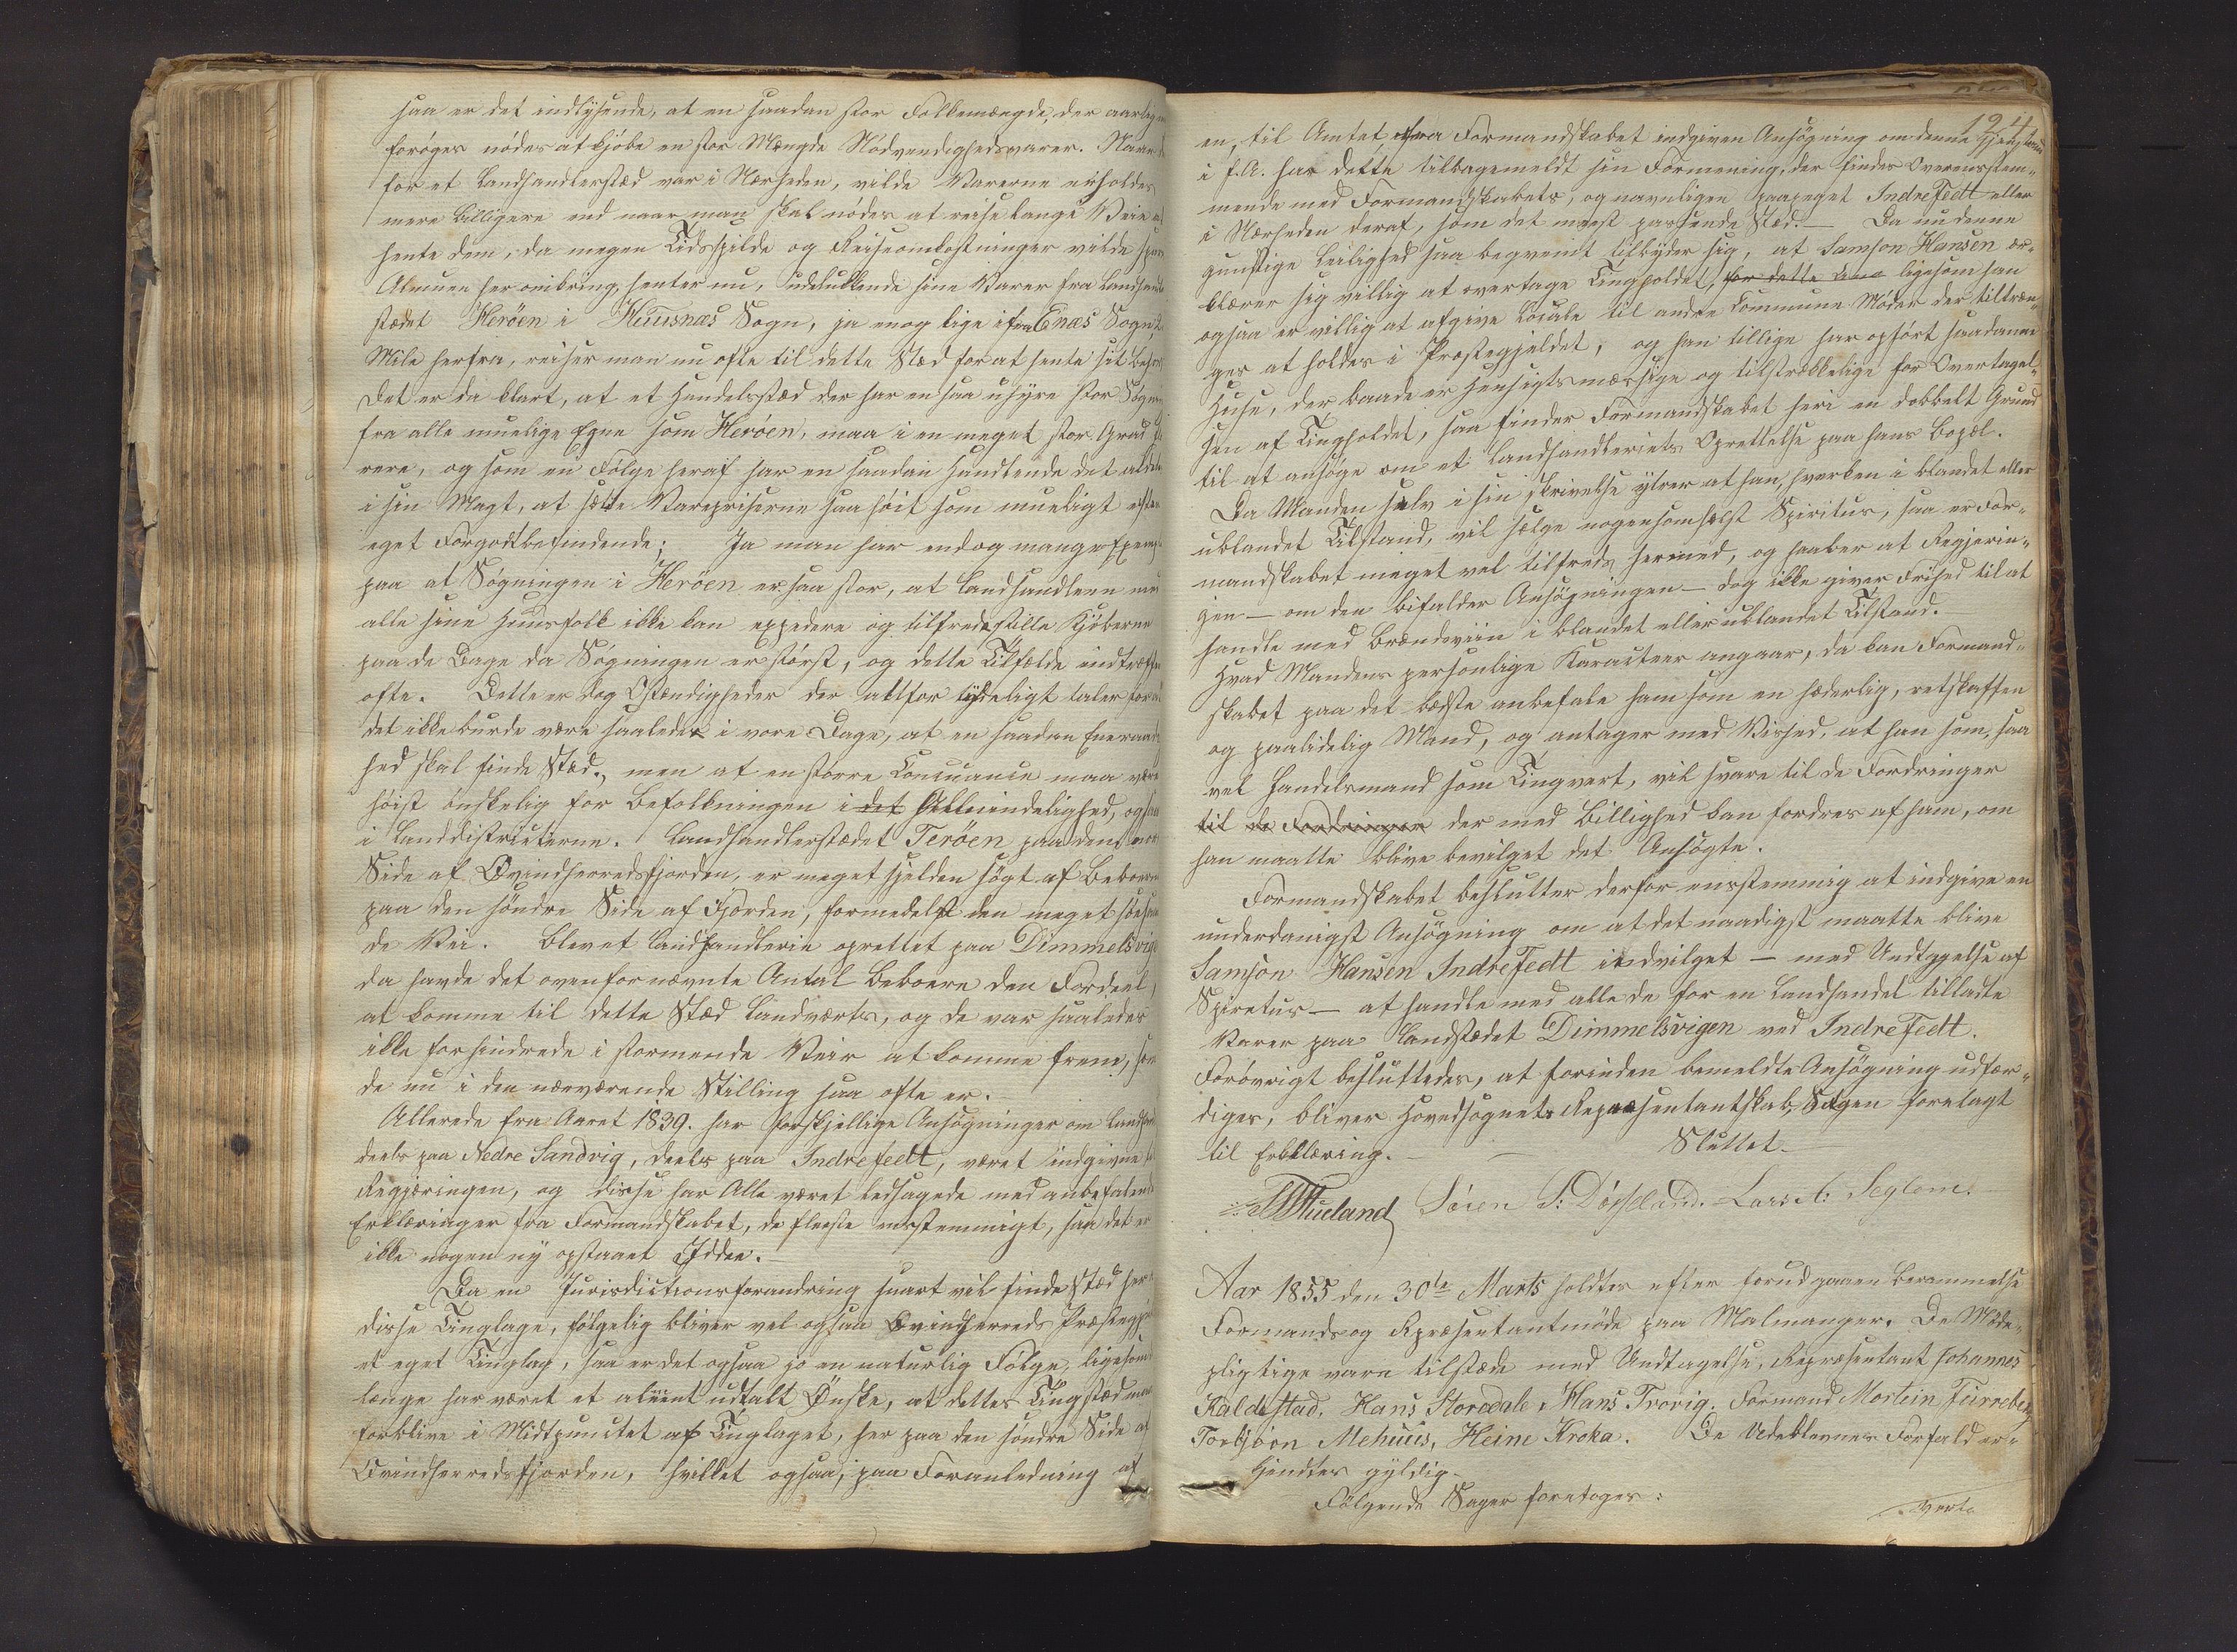 saa er det indlysende, at en saadan stor Folkemængde, der aarlig
forøges nødes at kjøbe en stor Mængde Nødvendighedsvarer. Naar
for et Landhandlerstæd var i Nærheden, vilde Varerne erholdes
mere billigere end naar man skal nødes at reise lange Veie
hente dem, da megen Tidsspilde og Reiseomkostninger vilde
Almuen her omkring, henter nu, udelukkende sine Varer fra Landhand
stædet Herøen i Huusnæs Sogn, ja enog lige ifra Enæs Sogn
Mile herfra, reiser man nu ofte til dette Stæd for at hente sit
Det er da klart, at et Handelsstæd der har en saa uhyre stor Søgning
fra alle muelige Egne som Herøen, maa i en meget stor Grad
rere, og som en Følge heraf har en saadan Handlende det
i sin Magt, at sætte Varepriserne saa høit som mueligt efter
eget Forgodtbefindende; Ja man har endog mange Exemp
paa at Søgningen i Herøen er saa stor, at Landhandleren med
alle sine Huusfolk ikke kan expedere og tilfredsstille Kjøberne
paa de Dage da Søgningen er størst, og dette Tilfælde indtræffer
ofte. Dette er dog Omstændigheder der altfor tydeligt taler for at
det ikke burde være saaledes i vore Dage, at en saadan Eneraad
hed skal finde Stæd, men at en større Concurance maa være
høist ønskelig for Befolkningen i det Allmindelighed, ogsaa
i Landdistricterne. Landhandlerstædet Terøen paa den nor
Side af Qvindherredsfjorden, er meget sjelden søgt af Beboerne
paa den søndre Side af Fjorden, formedelst den meget
de Vei. Blev et Landhandlerie oprettet paa Dimmelsvigen
da havde det ovenfornævnte Antal Beboere den Fordeel,
at komme til dette Stæd Landværts, og de var saaledes
ikke forhindrede i stormende Veir at komme frem, som
de nu i den nærværende Stilling saa ofte er.
Allerede fra Aaret 1839. har forskjellige Ansøgninger om Landhand
deels paa Nedre Sandvig, deels paa Indrefedt, været indgivne
Regjæringen, og disse har Alle været ledsagede med anbefalende
Erklæringer fra Formandskabet, de fleeste enstemmigt, saa det er
ikke nogen ny opstaaet Iddee.
Da en Jurisdictionsforandring snart vil finde Stæd her
disse Tinglage, følgelig bliver vel ogsaa Qvindherreds Præstegj
et eget Tinglag, saa er det ogsaa jo en naturlig Følge, ligesom
længe har været et alment udtalt Ønske, at dettes Tingstæd maa
forblive i Midtpunctet af Tinglaget, her paa den søndre Side af
Qvindherredsfjorden, hvilket ogsaa, paa Foranledning af
124
en, til Amtet fra Formandskabet indgiven Ansøgning om denne Gjenstand
i f. A. har dette tilbagemeldt sin Formening, der findes Overensstem-
mende med Formandskabets, og navnligen paapeget Indrefedt eller
i Nærheden deraf, som det meest passende Stæd. — Da nu denne
gunstige Leilighed saa beqvemt tilbyder sig, at Samson Hansen er-
klærer sig villig at overtage Tingholdet, for dette Aar ligesom han
ogsaa er villig at afgive Locale til andre Commune Møder der tiltræn-
ges at holdes i Præstegjeldet, og han tillige har opført saadanne
Huse, der baade er hensigtsmæssige og tilstrækkelige for Overtagel-
sen af Tingholdet, saa finder Formandskabet heri en dobbelt Grund
til at ansøge om et Landhandleriets Oprettelse paa hans Bopæl.
Da Manden selv i sin Skrivelse ytrer at han, hverken i blandet eller
ublandet Tilstand, vil sælge nogensomhelst Spiritus, saa er For-
mandskabet meget vel tilfreds hermed, og haaber at Regjerin-
gen — om den bifalder Ansøgningen — dog ikke giver Frihed til at
handle med Brændeviin i blandet eller ublandet Tilstand.
Hvad Mandens personlige Karacteer angaar, da kan Formand-
skabet paa det bedste anbefale ham som en hæderlig, retskaffen
og paalidelig Mand, og antager med Vished, at han som, saa
vel Handelsmand som Tingvert, vil svare til de Fordringer
til de Fordringer der med Billighed kan fordres af ham, om
han maatte blive bevilget det Ansøgte.
Formandskabet beslutter derfor enstemmig at indgive en
underdanigst Ansøgning om at det naadigst maatte blive
Samson Hansen Indrefedt indvilget — med Undtagelse af
Spiretus — at handle med alle de for en Landhandel tilladte
Varer paa Landstædet Dimmelsvigen ved Indrefedt.
Forøvrigt besluttedes, at forinden bemeldte Ansøgning udfær-
diges, bliver Hovedsognets Repræsentantskab, Sagen forelagt
til Erklæring. — Sluttet.
Sören S: Døssland. Lars A: Seglem.
Aar 1855 den 30te Marts holdtes efter forudgaaen Berammelse
Formands og Repræsentantmøde paa Malmanger. De Møde-
pligtige vare tilstæde med Undtagelse, Repræsentant Johannes
Kaldestad, Hans Storedale, Hans Trovig. Formand Mortein Furreberg
Torbjørn Mehuus, Heine Kroka. De Udeblevnes Forfald er-
kjendtes gyldig.
Følgende Sager foretoges:
Verte